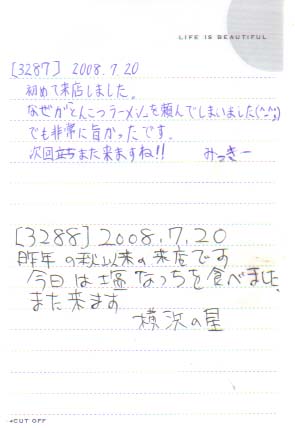 LIFE IS BEAUTIFUL
[3287] 2008.7.20
初めて来店しました。
なぜかとんこつラーメンを頼んでしまいました(^-^;)
でも非常に旨かったです。
次回立ちまた来ますね!! みっきー
[3288] 2008.7.20
昨年の秋以来の来店です
今日は塩なっちを食べました。
また来ます
横浜の星
CUT OFF